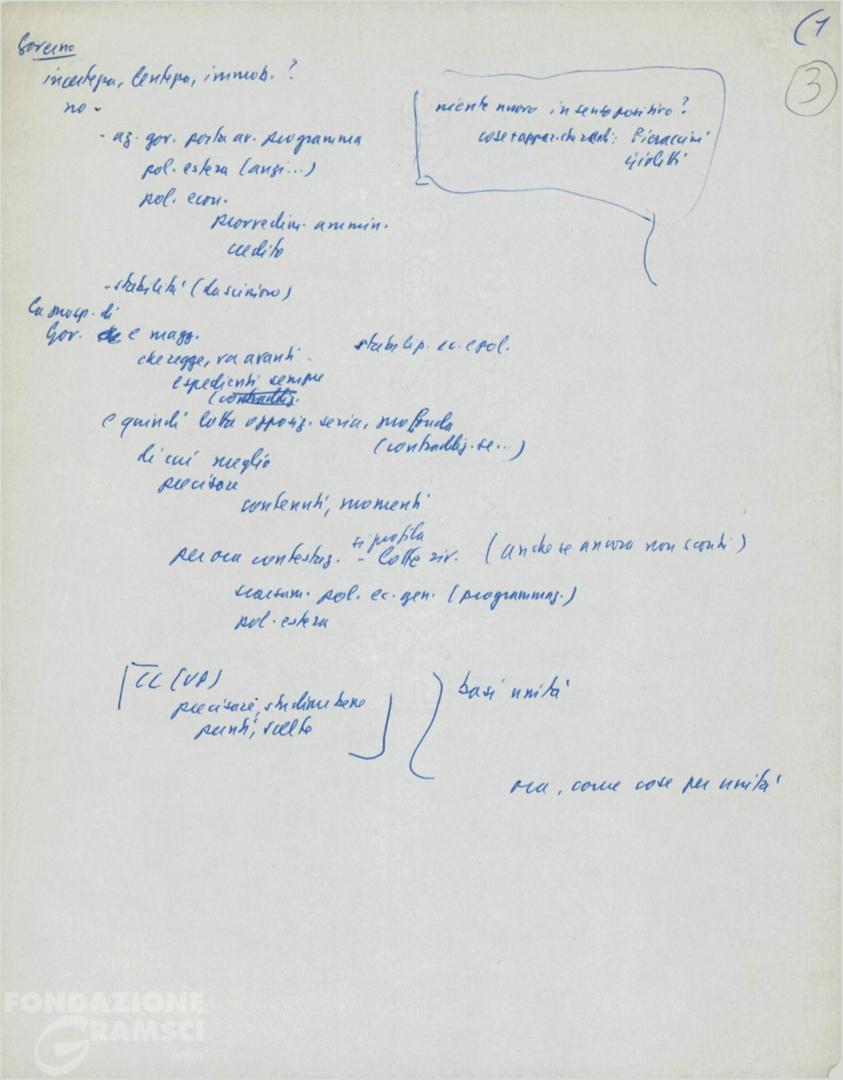 (1
3
Governo
incertezza, lentezza, immob. ?
no -
- az. gov. porta av. programma
pol. estera (anzi...)
pol. econ.
provvedim. ammin.
credito
niente nuovo in senso positivo?
cose + appar. che reali: Pieraccini
Giolitti
- stabilità (la scissione)
La prosp. di
Gov. e magg.
che regge, va avanti -
stabilizz. ec. e pol.
espedienti sempre
(contraddiz.
e quindi lotta opposiz. seria, profonda
(contraddiz. se...)
di cui meglio
precisare
contenuti, momenti
si profila
per ora contestaz. - lotte riv. (anche se ancora non scontri)
scarsam. pol. ec. gen. (programmaz.)
pol. estera
CC (UP)
precisare, studiare bene
punti, scelte
basi unità
ora, come cose per unità
FONDAZIONE
GRAMSCI
onlus